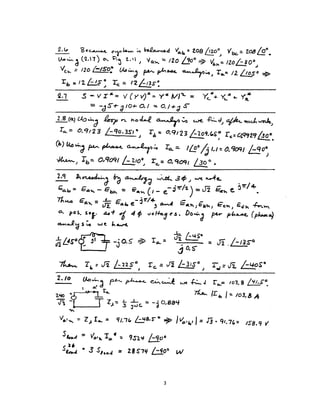 2.6 Because system is balanced Vab = 208 /120°, Vbc = 208 /0°.
Using (2.17) or Fig 2.11, Van = 120 /90° ⇒ Vbn = 120 /-30°,
Vcn = 120 /-150° Using per phase analysis, Ia = 12 /105° ⇒
Ib = 12 /-15°, Ic = 12 /-135°.
2.7 S = V I* = V (YV)* = Y* |V|² = Yc* + YL* + YR*
= -j5 + j10 + 0.1 = 0.1 + j5
2.8 (a) Using loop or nodal analysis we find, after much work,
Ia = 0.9123 /-90.35°, Ib = 0.9123 /-209.65° Ic = 0.9929 /30°.
(b) Using per phase analysis Ia = 1/0°/j1.1 = 0.9091 /-90°,
then, Ib = 0.9091 /-210°, Ic = 0.9091 /30°.
2.9 Proceeding by analogy with 3ϕ, we note
Eab = Ean - Ebn = Ean (1 - e^-jπ/2) = √2 Ean e^jπ/4.
Thus Ean = 1/√2 Eab e^-jπ/4, and Ean, Ebn, Ecn, Edn form
a pos. seq. set of 4ϕ voltages. Doing per phase (phase a)
analysis we have
1/√2 /-45° -j0.5 ⇒ Ia = 1/√2 /-45° / j0.5 = √2 /-135°
Then Ib = √2 /-225°, Ic = √2 /-315°, Id = √2 /-405°
2.10 Using per phase circuit we find Ia = 103.8 /41.5°.
Then |Ib| = 103.8 A
240/√3 Z₂ = 1/3 1/jωC = -j0.884
Va'n = Z₂ Ia = 91.76 /-48.5° ⇒ |Va'b'| = √3 · 91.76 = 158.9 V
Sload = Va'n Ia* = 9524 /-90°
Sload^3ϕ = 3 Sload = 28574 /-90° W
3